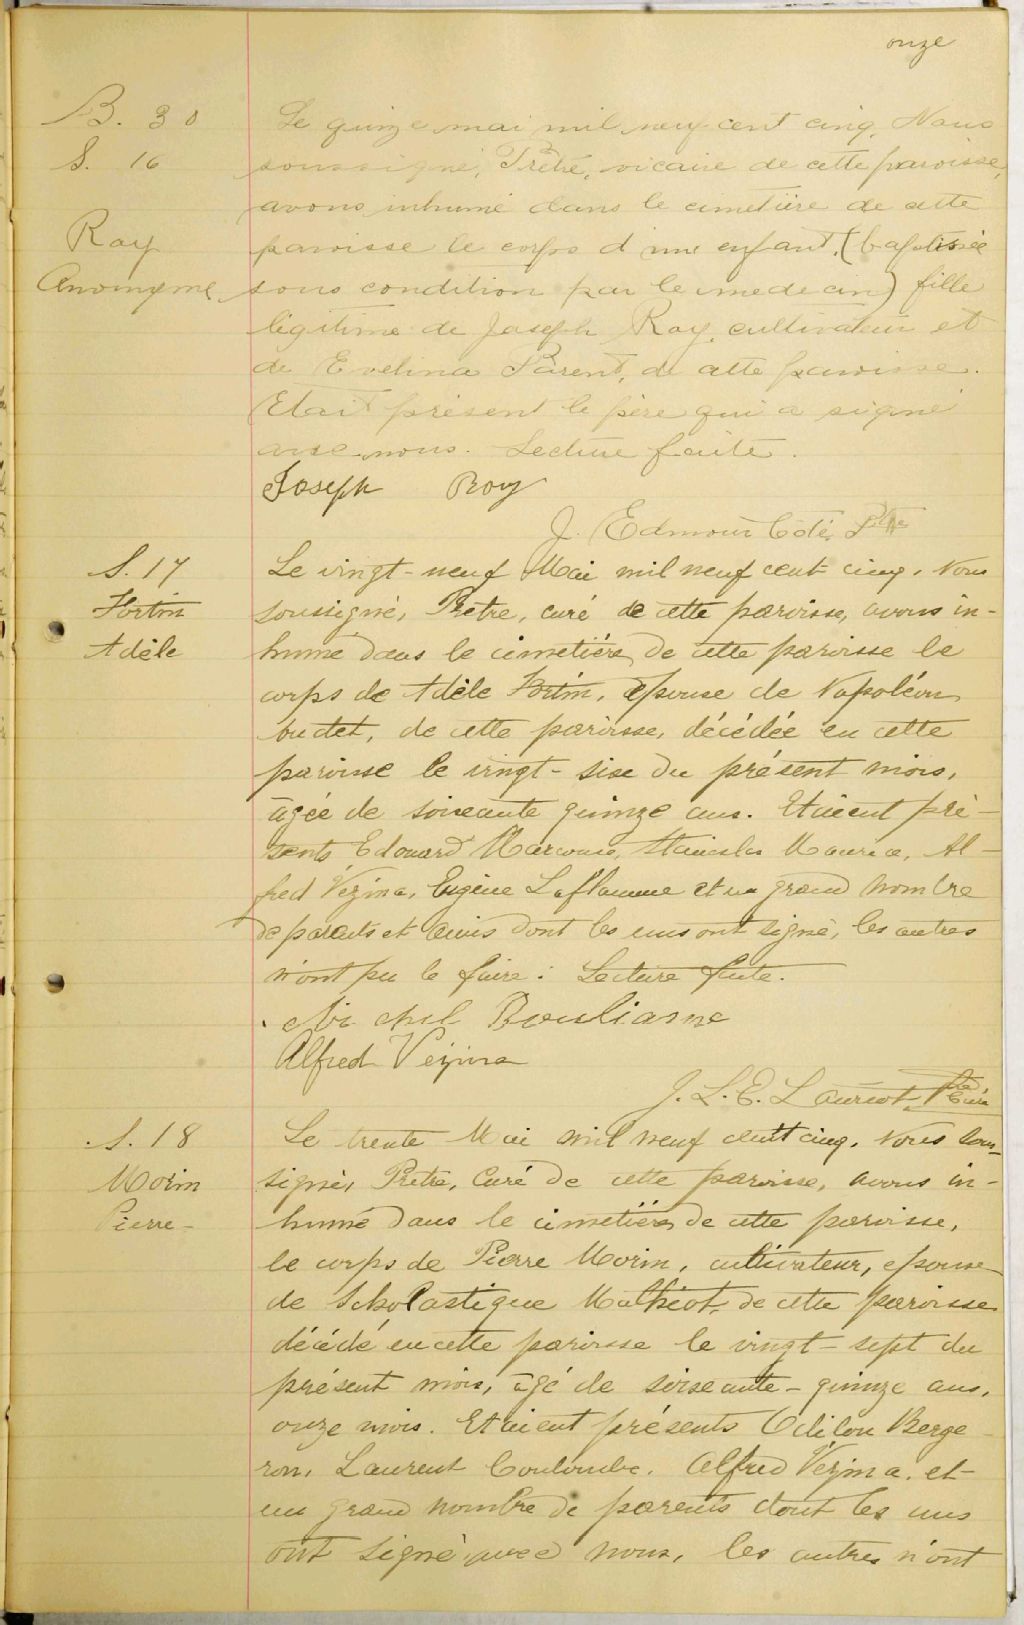 onze
B. 30
S. 16
Roy
Anonyme
Le quinze mai mil neuf cent cinq, Nous
soussigné, Prêtre, vicaire de cette paroisse,
avons inhumé dans le cimetière de cette
paroisse le corps d'une enfant, (baptisée
sous condition par le medecin) fille
légitime de Joseph Roy, cultivateur et
de Evelina Parent, de cette paroisse.
Etait présent le père qui a signé
avec nous. Lecture faite.
Joseph Roy
J. Edmour Coté, Ptre
S. 17
Fortin
Adèle
Le vingt-neuf Mai mil neuf cent cinq, Nous
soussigné, Prêtre, curé de cette paroisse, avons in-
humé dans le cimetière de cette paroisse le
corps de Adèle Fortin, épouse de Napoléon
de cette paroisse, décédée en cette
paroisse le vingt-six du présent mois,
âgée de soixante quinze ans. Etaient pré-
sents Edouard Marcoux, Stanislas Al-
fred Vézina, Eugène Laflamme et un grand nombre
de parents et amis dont les uns ont signé, les autres
n'ont pu le faire. Lecture faite.
Michel Bouliasne
Alfred Vezina
J. L. E. Lauriot, Ptre Curé
S. 18
Morin
Pierre
Le trente Mai mil neuf cent cinq, Nous sous-
signé, Prêtre, Curé de cette paroisse, avons in-
humé dans le cimetière de cette paroisse,
le corps de Pierre Morin, cultivateur, epoux
de Scholastique Mathieot, de cette paroisse
décédé en cette paroisse le vingt-sept du
présent mois, âgé de soixante-quinze ans,
onze mois. Etaient présents Odilon Berge
ron, Laurent Coulombe, Alfred Vézina, et
un grand nombre de parents dont les uns
ont signé avec nous, les autres n'ont